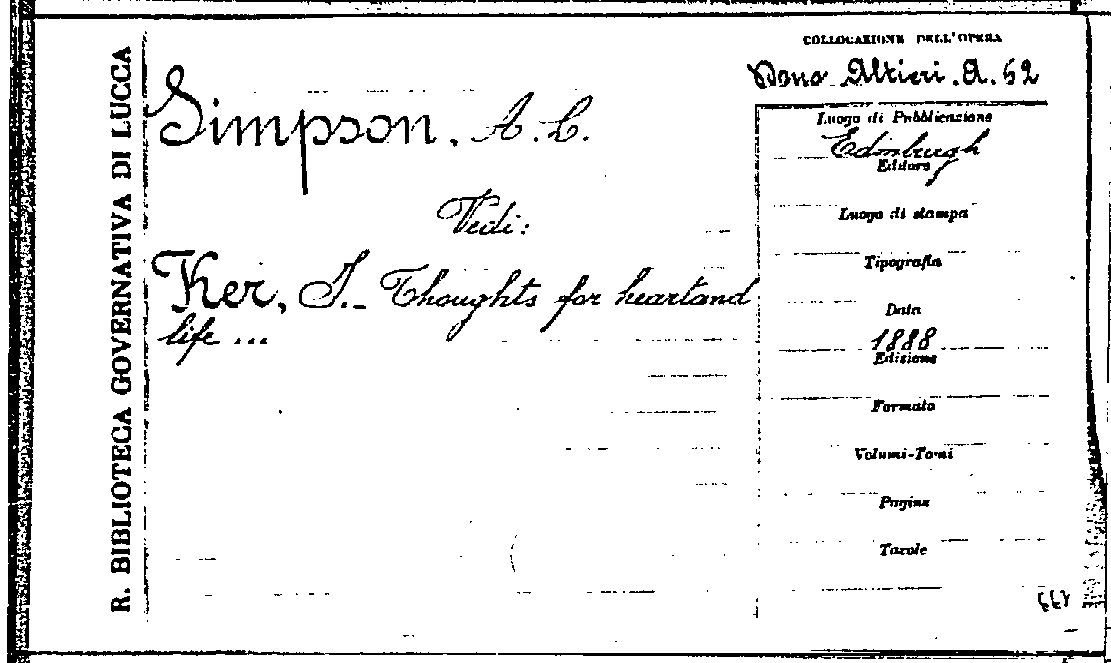 R. BIBLIOTECA GOVERNATIVA DI LUCCA
Simpson, A. L.
Vedi:
Ker, J._ Thoughts for heart and
life ...
COLLOCAZIONE DELL'OPERA
Dono Altieri. A. 52
Luogo di Pubblicazione
Edinburgh
Editore
Luogo di stampa
Tipografia
Data
1888
Edizione
Formato
Volumi-Tomi
Pagine
Tavole